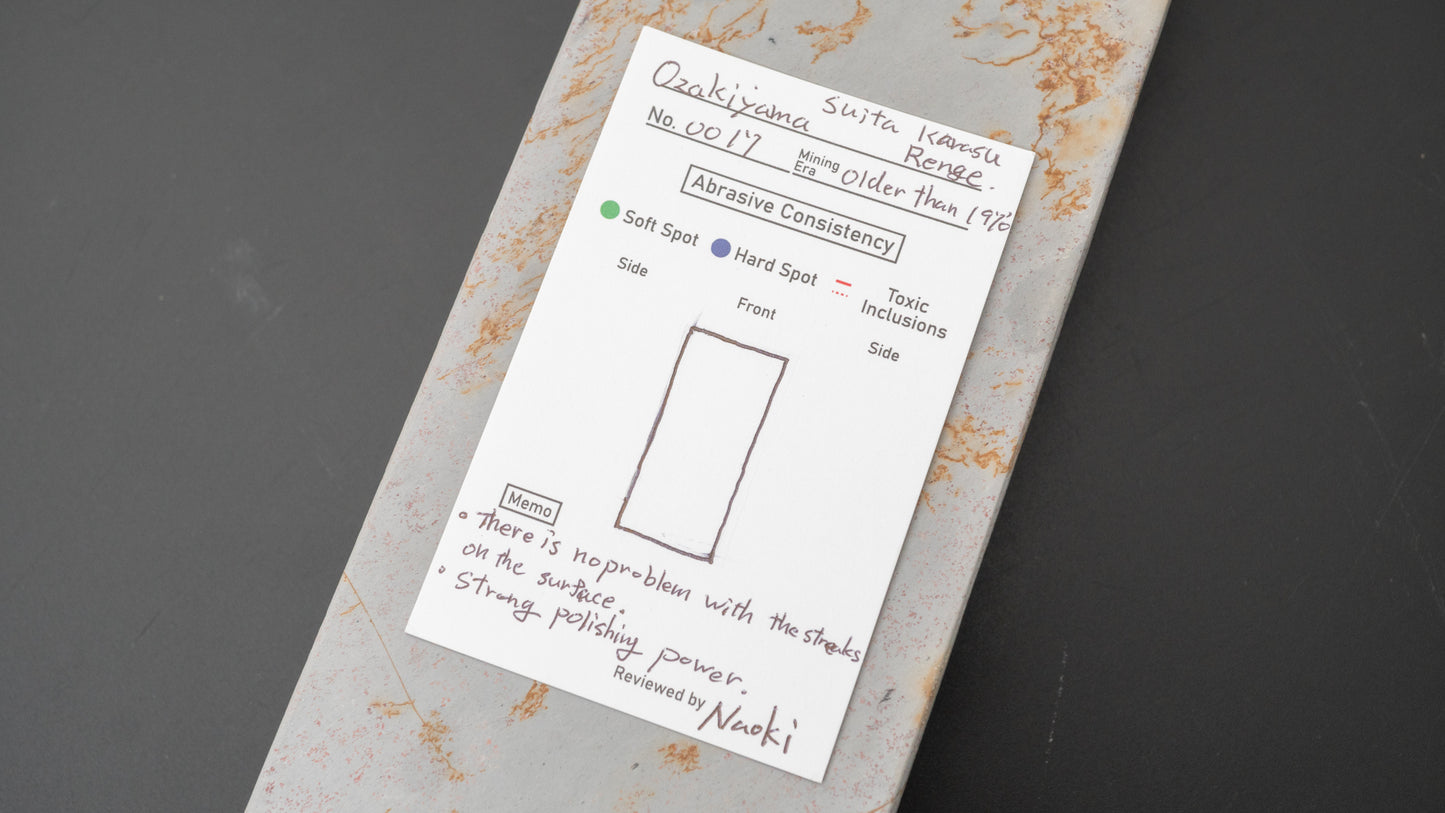 Ozakiyama Suita Karasu
Renge.
No. 0017 Mining Era Older than 1970
Abrasive Consistency
Soft Spot Hard Spot Toxic Inclusions
Side Front Side
Memo
• There is no problem with the streaks
on the surface.
• Strong polishing power.
Reviewed by Naoki